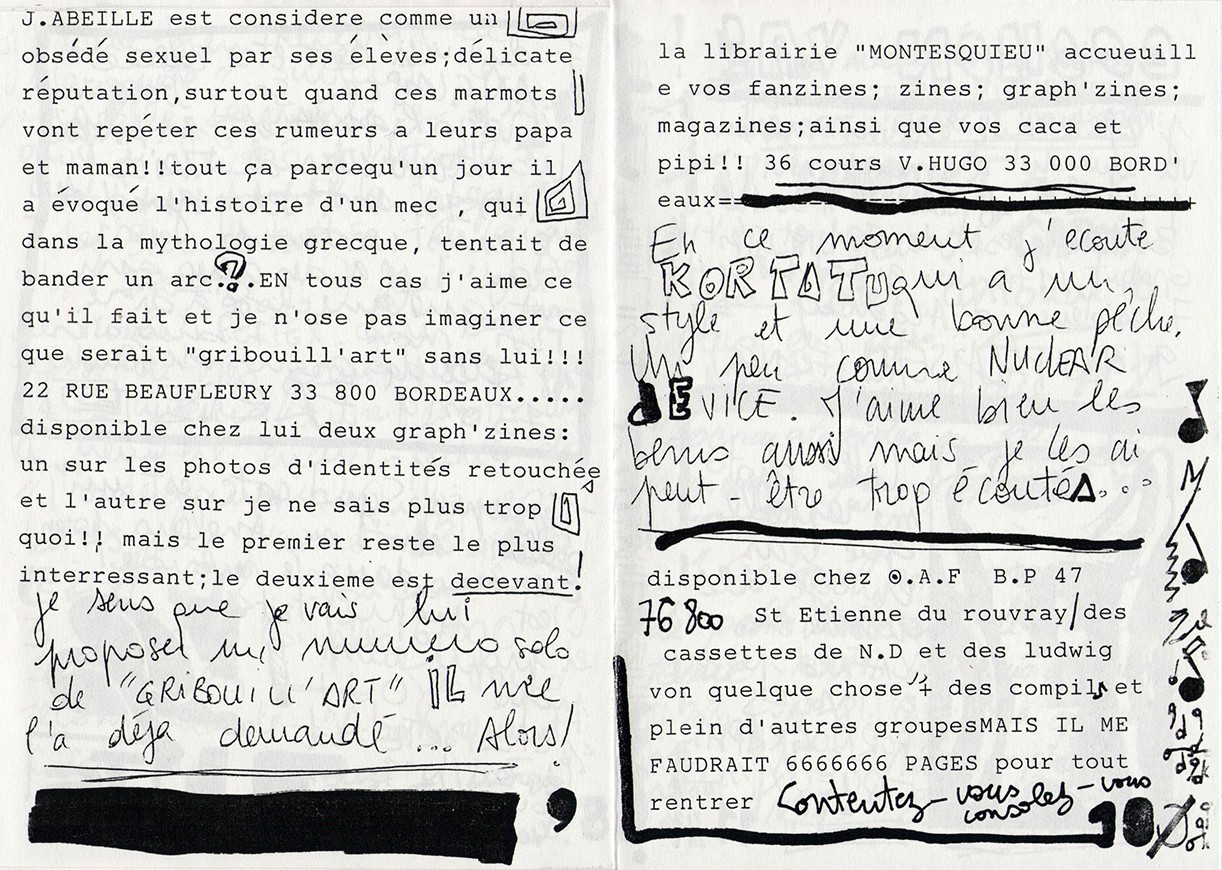 J.ABEILLE est considere comme un
obsédé sexuel par ses élèves;délicate
réputation,surtout quand ces marmots
vont repéter ces rumeurs a leurs papa
et maman!!tout ça parcequ'un jour il
a évoqué l'histoire d'un mec , qui
dans la mythologie grecque, tentait de
bander un arc.?.EN tous cas j'aime ce
qu'il fait et je n'ose pas imaginer ce
que serait "gribouill'art" sans lui!!!
22 RUE BEAUFLEURY 33 800 BORDEAUX.....
disponible chez lui deux graph'zines:
un sur les photos d'identités retouchée
et l'autre sur je ne sais plus trop
quoi!! mais le premier reste le plus
interressant;le deuxieme est decevant!
je sens que je vais lui
proposer un numero solo
de "GRiBOUiLL'ART" IL me
l'a déja demandé ... Alors!
9
la librairie "MONTESQUIEU" accueuill
e vos fanzines; zines; graph'zines;
magazines;ainsi que vos caca et
pipi!! 36 cours V.HUGO 33 000 BORD'
eaux==
En ce moment j'ecoute
KORTATU qui a un
style et une bonne pêche.
Un peu comme NUCLEAR
DEVICE. J'aime bien les
berus aussi mais je les ai
peut-être trop écoutés...
disponible chez O.A.F B.P 47
76 800 St Etienne du rouvray/des
cassettes de N.D et des ludwig
von quelque chose'+ des compils et
plein d'autres groupesMAIS IL ME
FAUDRAIT 6666666 PAGES pour tout
rentrer Contentez-vous consolez-vous
10